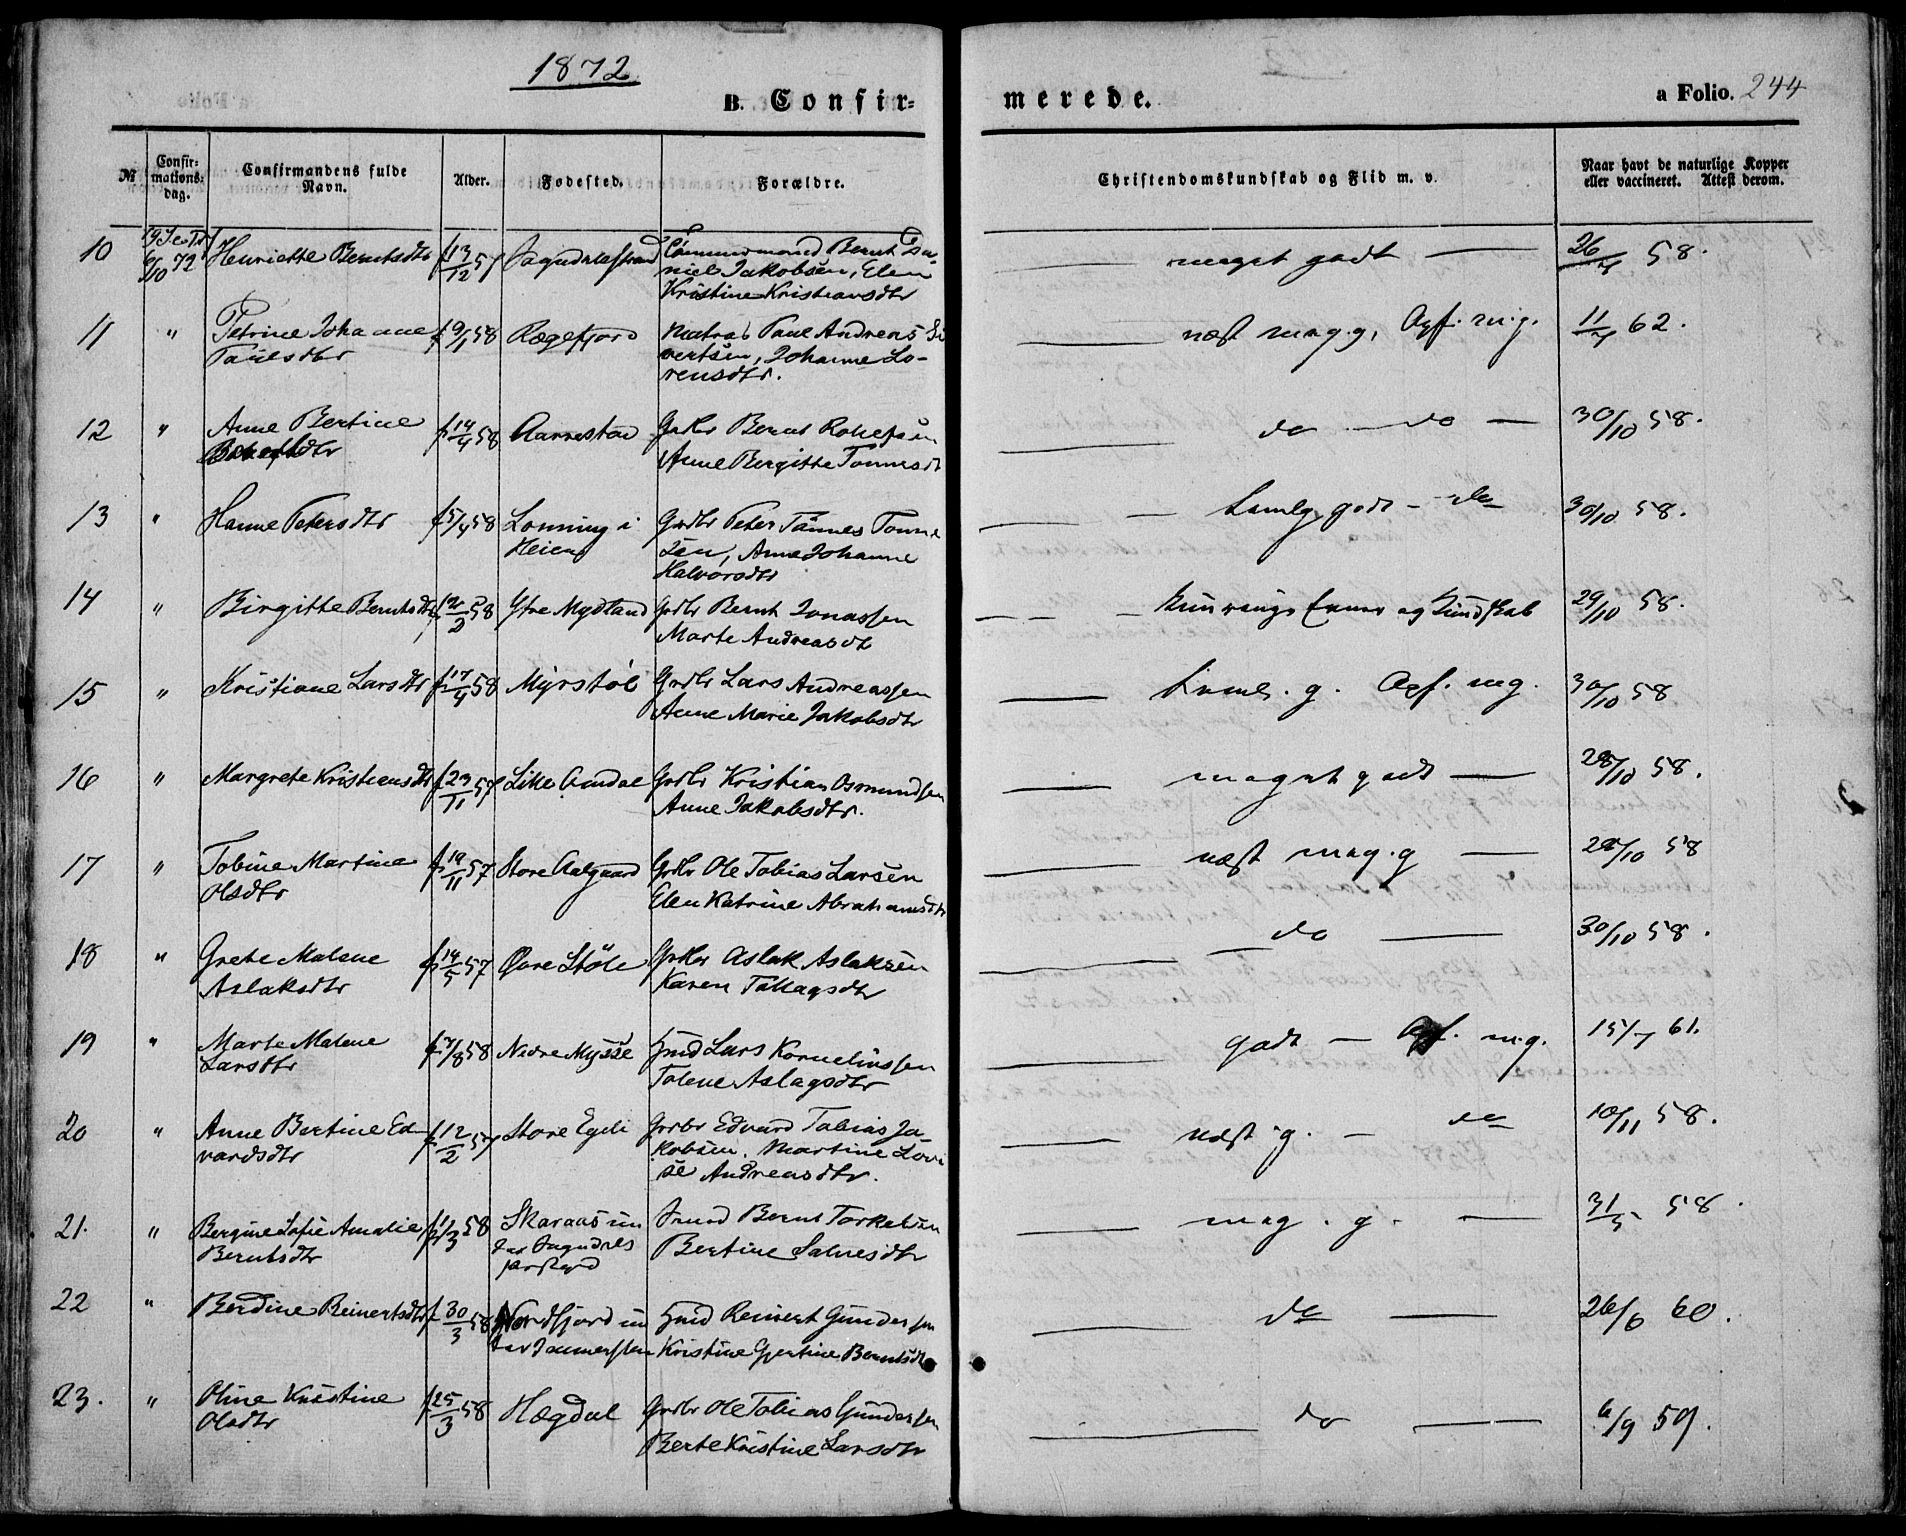 1872
B. Confir=
merede.
a Folio. 244
№
Confir=
mations=
dag.
Confirmandens fulde
Navn.
Alder.
Fødested.
Forældre.
Christendomskundskab og Flid m. v.
Naar havt de naturlige Kopper
eller vaccineret. Attest derom.
10 Henriette Berntsdtr f 13/12 57 Sogndalsstrand Bernt Da-
niel Jakobsen, Elen
Kristine Kristiansdtr
meget godt — 26/ 58.
11 " Petrine Johanne f 9/1 58 Rægefjord Matros Paul Andreas Si
Paulsdtr vertsen, Johanne Lo-
rensdtr.
næst meg. g, Opf. m. g. 11/ 62.
12 " Anne Bertine f 14/4 58 Aarrestad Grdbr Bernt
Anne Bergitte Tønnesdt
do — do — 30/10 58.
13 " Hanne Petersdtr f 5/4 58 Lonning i Grdbr Peter Tønnes Tønne
Heien sen, Anne Johanne
Halvorsdtr
Temlg godt — do 30/10 58.
14 " Birgitte Berntsdtr f 12/2 58 Yfre Mydland Grdbr Bernt Jonassen
Marte Andreasdt
Kun ringe Evner og Kundskab 29/10 58.
15 " Kristiane Larsdtr f 17/4 58 Myrstøl Grdbr Lars Andreassen
Anne Marie Jakobsdtr
Teml. g. Opf. m g. 30/10 58
16 " Margrete Kristiansdtr f 23/11 57 Lille Amdal Grdbr Kristian Osmundsen
Anne Jakobsdtr.
meget godt — 28/10 58.
17 " Tobine Martine f 19/11 57 Store Aalgaard Grdbr Ole Tobias Larsen
Olsdtr Elen Katrine Abrahamsdtr
næst meg. g — 29/10 58
18 " Grete Malene f 14/5 57 Øvre Støle Grdbr Aslak Aslaksen
Aslaksdtr Karen Tollagsdtr
do — 30/10 58.
19 " Marte Malene f 7/8 58 Nedre Mysse Hmd Lars Korneliussen
Larsdtr Tolene Aslagsdtr
godt — Opf. m. g. 15/7 61.
20 " Anne Bertine Ed- f 12/2 57 Store Egeli Grdbr Edvard Tobias Ja
vardsdtr kobsen. Martine Lovi
se Andreasdtr.
næst g. — do 10/11 58.
21. " Bergine Sofie Amalie f 1/3 58 Skaraas un Bernt Torkelsen
Berntsdtr der Sogndals Bertine Salvesdtr
meg. g. — 31/5 58.
22 " Berdine Reinertsdtr f 30/3 58 Nordfjord un Hmd Reinert Gundersen
Kristine Gjertine Berntsdtr
do — 26/6 60.
23. " Oline Kristine f 25/3 58 Hægdal Grdbr Ole Tobias Gundersen
Olsdtr Berte Kristine Larsdtr
do — 6/9 59.